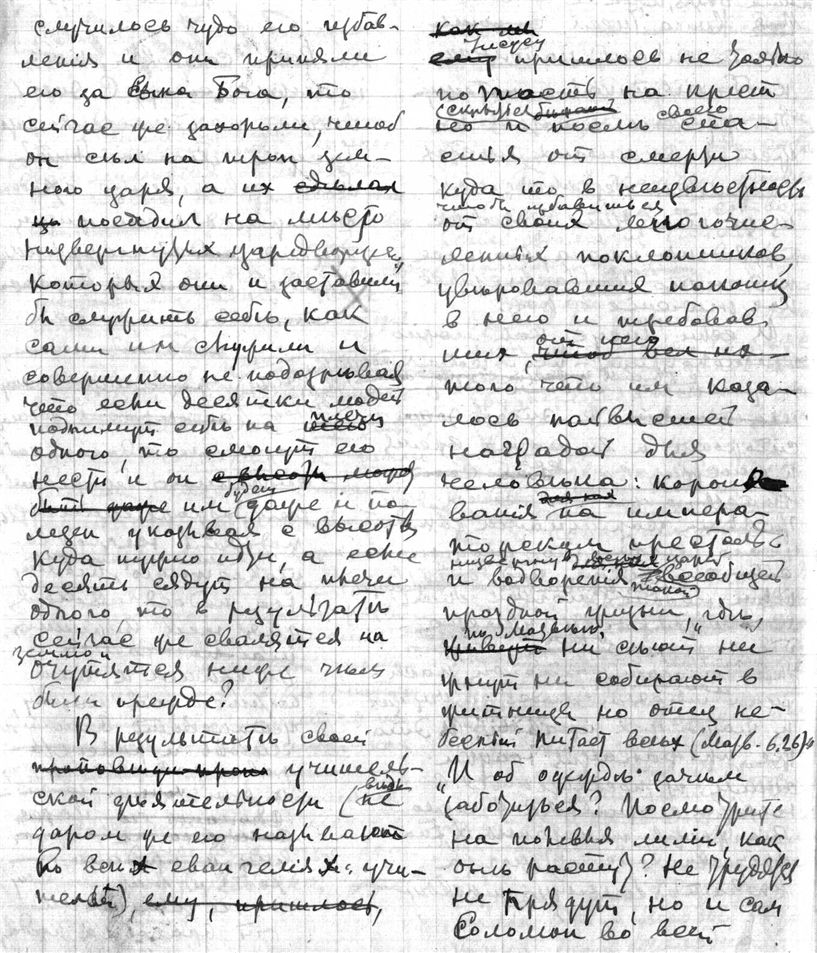 случилось чудо его избав-
ления и они приняли
его за Сына Бога, то
сейчас же захотели, чтоб
он сѣл на трон зем-
ного царя, а их сдѣлал
посадил на мѣсто
низвергнутых царедворцев,
которыя они и заставили
бы служить себѣ, как
сами им служили и
совершенно не подозрѣвая
что если десятки людей
поднимут себѣ на плечи
одного, то смогут его
нести, и он с высоты
будет
быть даже им даже и по-
лезен указывая с высоты
куда нужно идти, а если
десять сядут на плечи
одного, то в результатѣ
сейчас же свалятся на
землю и
очутятся ниже чѣм
были прежде?
В результатѣ своей
учитель-
ской дѣятельности (вѣдь не
даром же его называют
во всѣх евангелиях: учи-
телем), ему, пришлось,
как им
Иисусу
ему пришлось не взойти
попасть на крест
скрыться
но и послѣ своего спа-
сения от смерти
куда то, в неизвѣстность
чтобы избавиться
от своих многочис-
ленных поклонников,
увѣровавших наконец
в него и требовав-
от него
ших, чтоб вел на-
того что им каза-
лось наивысшей
наградой для
человѣка: корон
вания на импера-
торском престолѣ
и водворения всеобщей
такой
праздной жизни, "гдѣ,
по Матвѣю,
живут ни сѣют ни
жнут ни собирают в
житницы но отец не-
бесный питает всѣх (Матв. 6,26)"
"И об одеждѣ зачѣм
заботиться? Посмотрите
на полевыя лилии, как
онѣ растут? Не трудятся
не прядут, но и сам
Соломон во всей